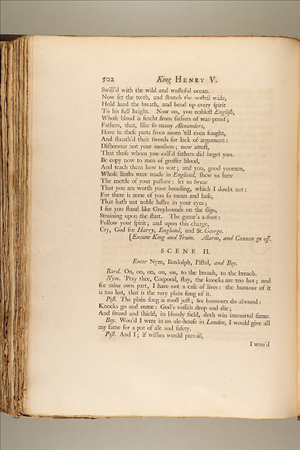 502 King HENRY V.
Swill'd with the wild and wasteful ocean.
Now set the teeth, and stretch the nostril wide,
Hold hard the breath, and bend up every spirit
To his full height. Now on, you noblest English,
Whose blood is fetcht from fathers of war-proof;
Fathers, that, like so many Alexanders,
Have in these parts from morn 'till even fought,
And sheath'd their swords for lack of argument:
Dishonour not your mothers; now attest,
That those whom you call'd fathers did beget you.
Be copy now to men of grosser blood,
And teach them how to war; and you, good yeomen,
Whose limbs were made in England, shew us here
The mettle of your pasture: let us swear
That you are worth your breeding, which I doubt not:
For there is none of you so mean and base,
That hath not noble lustre in your eyes;
I see you stand like Greyhounds on the slips,
Straining upon the start. The game's a-foot:
Follow your spirit; and upon this charge,
Cry, God for Harry, England, and St. George.
[Exeunt King and Train. Alarm, and Cannon go off.
SCENE II.
Enter Nym, Bardolph, Pistol, and Boy.
Bard. On, on, on, on, on, to the breach, to the breach.
Nym. 'Pray thee, Corporal, stay, the knocks are too hot; and
for mine own part, I have not a case of lives: the humour of it
is too hot, that is the very plain song of it.
Pist. The plain song is most just; for humours do abound:
Knocks go and come: God's vassals drop and die;
And sword and shield, in bloody field, doth win immortal fame.
Boy. Wou'd I were in an ale-house in London, I would give all
my fame for a pot of ale and safety.
Pist. And I; if wishes would prevail,
I wou'd